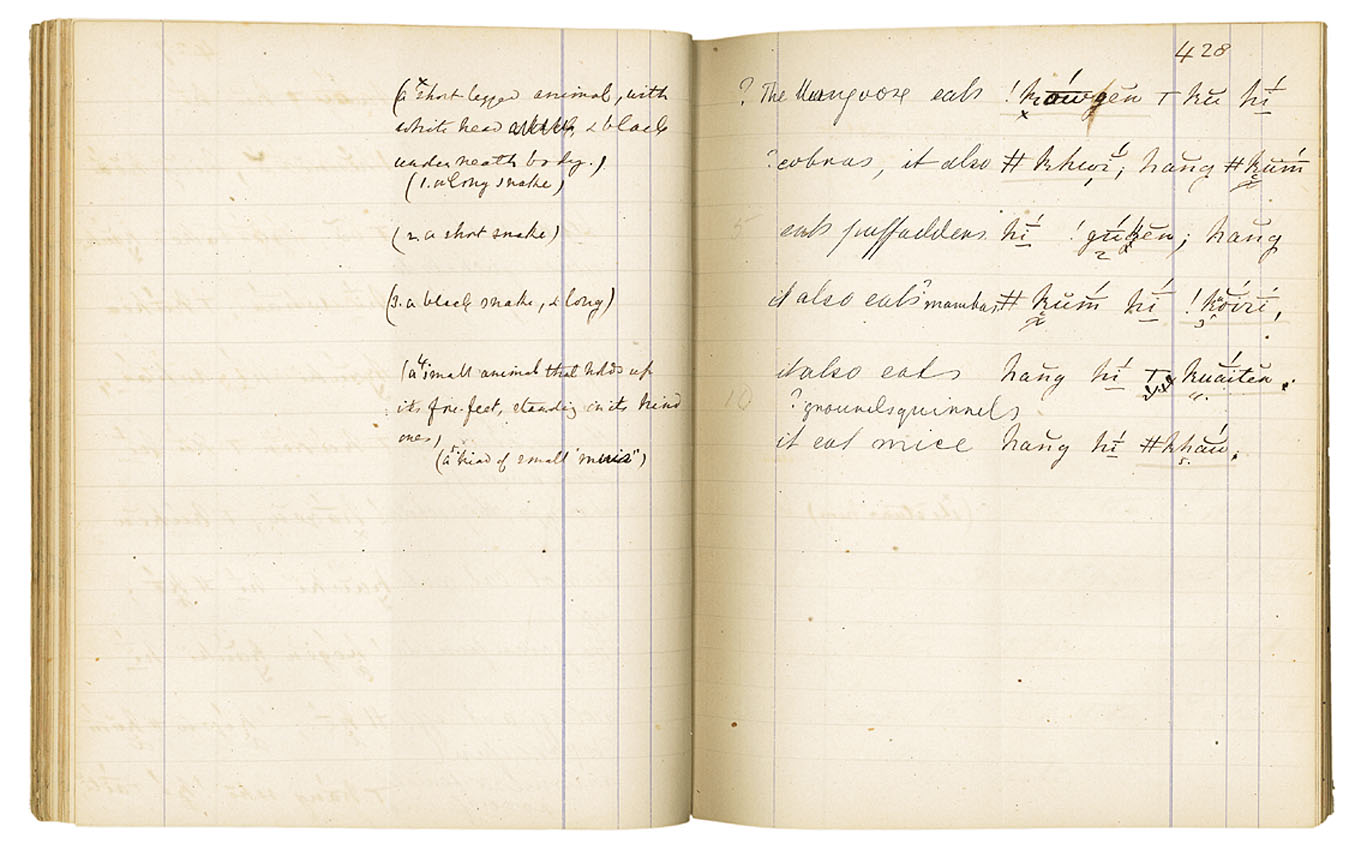 (a short legged animal, with
white head & black
underneath body.)
(1. a long snake)
(2. a short snake)
(3. a black snake, & long)
(a small animal that holds up
its fore-feet, standing on its hind
ones)
(a kind of small "muis")
428
? The Mungoose eats ! hí
? cobras, it also ǂ khwí, haṅg ǂ kúm
5 eats puffadders hí ! ; haṅg
it also eats ? mambas ǂ kúm hí ! kóïrí,
it also eats haṅg hí kuáiten.
10 ? groundsquirrels
it eat mice haṅg hí ǂ kháu.